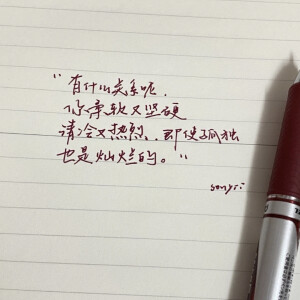 “有什么关系呢.
你柔软又坚硬
清冷又热烈、即使孤独
也是灿烂的。”